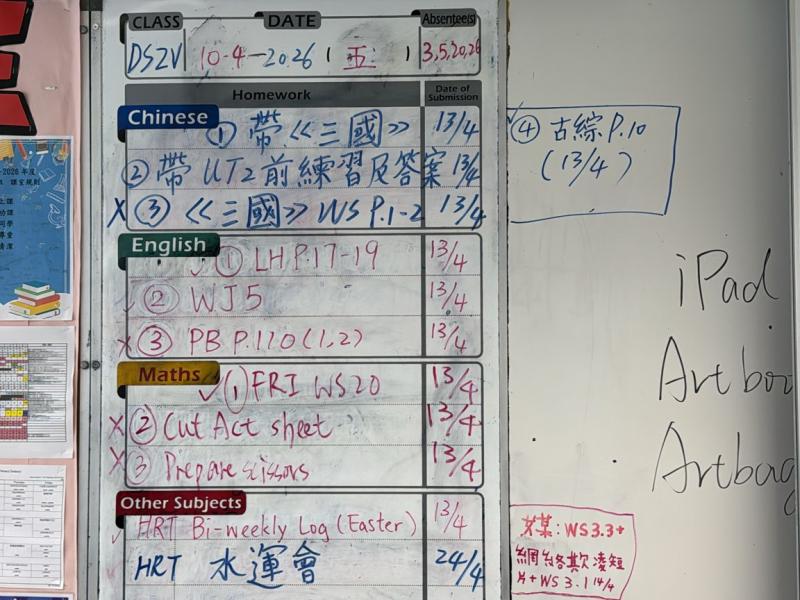 CLASS DATE Absentee(s)
DS2V 10-4-2026 ( 五 ) 3,5,20,26
Homework Date of Submission
Chinese
① 帶《三國》 13/4
② 帶 UT2前練習及答案 13/4
X ③ 《三國》WS P.1-2 13/4
④ 古綜 P.10
(13/4)
English
✓ ① LH P.17-19 13/4
✓ ② WJ5 13/4
X ③ PB P.110 (1,2) 13/4
Maths
✓ ① FRI WS20 13/4
X ② Cut Act sheet 13/4
X ③ Prepare scissors 13/4
Other Subjects
✓ HRT Bi-weekly Log (Easter) 13/4
HRT 水運會 24/4
iPad
Art
Artbag
WS3.3+
短
片+WS 3.1 14/4
課室規則